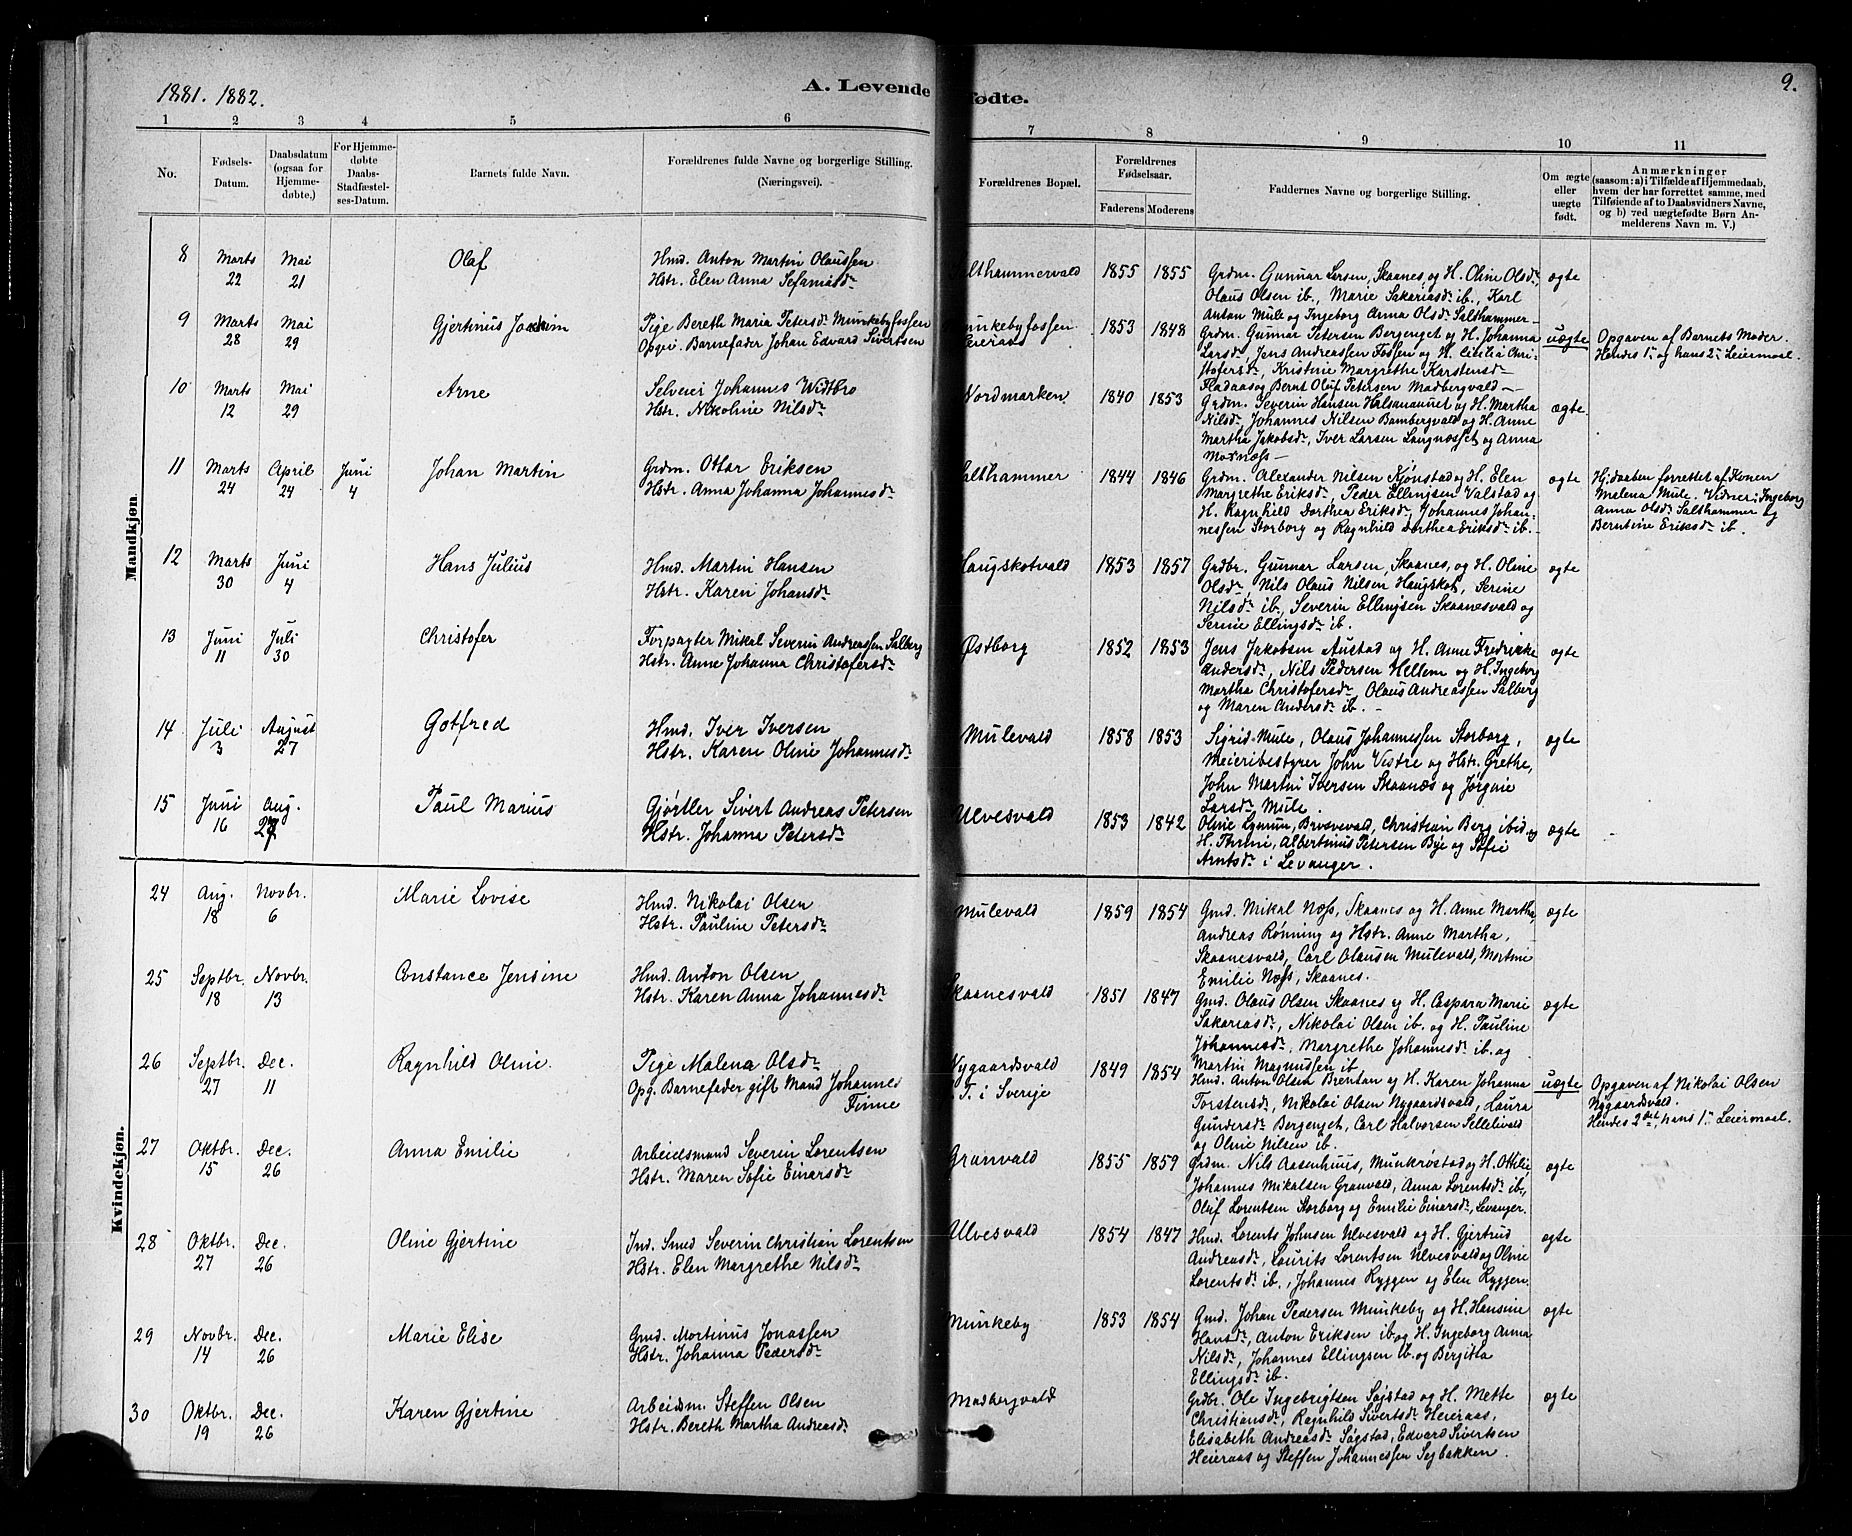 1881. 1882.
A. Levende fødte.
9.
1 2 3 4 5 6 7 8 9 10 11
No.
Fødsels-
Datum.
Daabsdatum
(ogsaa for
Hjemme-
døbte.)
For Hjemme-
døbte
Daabs-
Stadfæstel-
ses-Datum.
Barnets fulde Navn.
Forældrenes fulde Navne og borgerlige Stilling.
(Næringsvei).
Forældrenes Bopæl.
Forældrenes
Fødselsaar.
Faderens Moderens
Faddernes Navne og borgerlige Stilling.
Om ægte
eller
uægte
født.
Anmærkninger
(saasom: a) i Tilfælde af Hjemmedaab,
hvem der har forrettet samme, med
Tilføiende af to Daabsvidners Navne,
og b) ved uægtefødte Børn An-
melderens Navn m. V.)
Mandkjøn.
8 Marts Mai Olaf Hmd. Anton Martin Olaussen Salthammervald 1855 1855 Grdm. Gunnar Larsen, Skaanes, og H. Oline Olsdr, ægte
22 21 Hstr. Elen Anna Sefaniasdr Olaus Olsen ib., Marie Sakariasdr ib., Karl
Anton Mule og Ingeborg Anna Olsdr Salthammer
9 Marts Mai Gjertinus Joakim Pige Bereth Maria Petersdr Munkebyfossen Munkebyfossen 1853 1848 Grdm. Gunnar Petersen Borgenget og H. Johanna uægte Opgaven af Barnets Moder.
28 29 Opgi. Barnefader Johan Edvard Sivertsen Heieraas Larsdr, Jens Andreassen Fossen og H. Cecilia Chri- Hendes 1ste og hans 2det Leiermaal.
stofersdr, Kristine Margrethe Karstensdr
Fladaas og Bernt Oluf Petersen Madbergvald
10 Marts Mai Arne Selveier Johannes Widtbro Nordmarken 1840 1853 Grdm. Severin Hansen Halsanaunet og H. Martha ægte
12 29 Hstr. Nikoline Nilsdr Nilsdr, Johannes Nilsen Bambergvald og H. Anne
Martha Jakobsdr, Iver Larsen Langnæsset og Anna
Marnæss
11 Marts April Juni Johan Martin Grdm. Ottar Eriksen Salthammer 1844 1846 Grdm. Alexander Nilsen Kjønstad og H. Elen ægte Hj.daaben forrettet af Konen
24 24 4 Hstr. Anna Johanna Johannesdr Margrethe Eriksdr, Peder Ellingsen Valstad og Malena Mule. Vidner: Ingeborg
H. Ragnhild Dorthea Eriksdr, Johannes Johan- Anna Olsdr Salthammer og
nessen Storborg og Ragnhild Dorthea Eriksdr ib. Berntine Eriksdr ib.
12 Marts Juni Hans Julius Hmd. Martin Hansen Haugskotvald 1853 1857 Grdbr. Gunnar Larsen, Skaanes, og H. Oline ægte
30 4 Hstr. Karen Johansdr Olsdr, Nils Olaus Nilsen Haugskot, Serine
Nilsdr ib., Severin Ellingsen Skaanesvald og
Serine Ellingsdr ib.
13 Juni Juli Christofer Forpagter Mikal Severin Andreassen Salberg Østborg 1852 1853 Jens Jakobsen Austad og H. Anne Fredrikke ægte
11 30 Hstr. Anne Johanna Christofersdr Andersdr, Nils Pedersen Hellem og H. Ingeborg
Martha Christofersdr, Olaus Andreassen Salberg
og Maren Andersdr ib.
14 Juli August Gotfred Hmd. Iver Iversen Mulevald 1858 1853 Sigrid Mule, Olaus Johannessen Storborg, ægte
3 27 Hstr. Karen Oline Johannesdr Meieribestyrer John Vistre og Hstr. Grethe,
John Martin Iversen Skaanæs og Jørgine
Larsdr Mule.
15 Juni Aug. Paul Marius Gjørtler Sivert Andreas Petersen Ulvesvald 1853 1842 Oline Lynum, Brusvevald, Christian Berg ibid. og ægte
16 27 Hstr. Johanna Petersdr H. Thrine, Albertinus Petersen Bye og Sofie
Arntsdr i Levanger.
Kvindekjøn.
24 Aug. Novbr. Marie Lovise Hmd. Nikolai Olsen Mulevald 1859 1854 Gmd. Mikal Næss, Skaanes og H. Anne Martha, ægte
18 6 Hstr. Pauline Petersdr Andreas Rønning og Hstr. Anne Martha,
Skaanesvald, Carl Olausen Mulevald, Martine
Emilie Næss, Skaanes.
25 Septbr. Novbr. Constance Jensine Hmd. Anton Olsen Skaanesvald 1851 1847 Gmd. Olaus Olsen Skaanes og H. Caspara Marie ægte
18 13 Hstr. Karen Anna Johannesdr Sakariasdr, Nikolai Olsen ib. og H. Pauline
Johannesdr, Margrethe Johannesdr ib. og
Martin Magnussen ib
26 Septbr. Dec. Ragnhild Oline. Pige Malena Olsdr Nygaardsvald 1849 1854 Hmd. Anton Olsen Brentan og H. Karen Johanna uægte Opgaven af Nikolai Olsen
27 11 Opg. Barnefader gift Mand Johannes Finne p. T. i Sverije Torstensdr, Nikolai Olsen Nygaardsvald, Laura Nygaardsvald.
Gundersdr Bergenget, Carl Halvorsen Sellelivald Hendes 2det, hans 1ste Leiermaal.
og Oline Nilsen ib.
27 Oktbr. Dec. Anna Emilie Arbeidsmand Severin Lorentsen Granvald 1855 1859 Grdm. Nils Aasenhuus, Munkrøstad og H. Ottilie, ægte
15 26 Hstr. Maren Sofie Einersdr Johannes Mikalsen Granvald, Anna Lorentsdr ib.,
Oluf Lorentsen Storborg og Emilie Einarsdr, Levanger.
28 Oktbr. Dec. Oline Gjertine Ind. Smed Severin Christian Lorentsen Ulvesvald 1854 1847 Hmd. Lorents Johnsen Ulvesvald og H. Gjertrud ægte
27 26 Hstr. Elen Margrethe Nilsdr Andreasdr, Laurits Lorentsen Ulvesvald og Oline
Lorentsdr ib., Johannes Ryggen og Elen Ryggen.
29 Novbr. Dec. Marie Elise Gmd. Mortinus Jonassen Munkeby 1853 1854 Gmd. Johan Pedersen Munkeby og H. Hansine ægte
14 26 Hstr. Johanna Pedersdr Hansdr, Anton Eriksen ib. og H. Ingeborg Anna
Nilsdr, Johannes Ellingsen ib. og Bergitta
Ellingsdr ib.
30 Oktbr. Dec. Karen Gjertine Arbeidsm. Steffen Olsen Madbergvald Grdbr. Ole Ingebrigtsen Søgstad og H. Mette ægte
19 26 Hstr. Bereth Martha Andreasdr Christiansdr, Ragnhild Sivertsdr Heieraas,
Elisabeth Andreasdr Søgstad, Edvard Sivertsen
Heieraas og Steffen Johannessen Sejbakken.